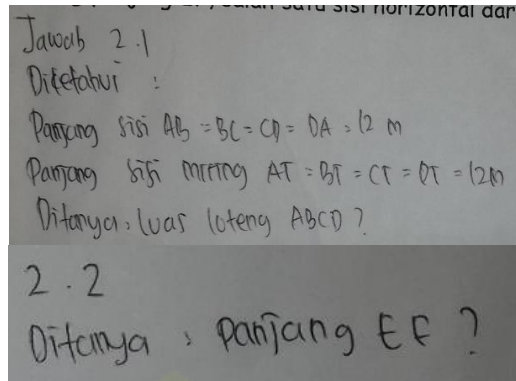 salah satu sisi horizontal dar
Jawab 2.1
Diketahui :
Panjang sisi AB = BC = CD = DA = 12 m
Panjang sisi miring AT = BT = CT = DT = 12m
Ditanya : luas loteng ABCD ?
2.2
Ditanya : panjang EF ?